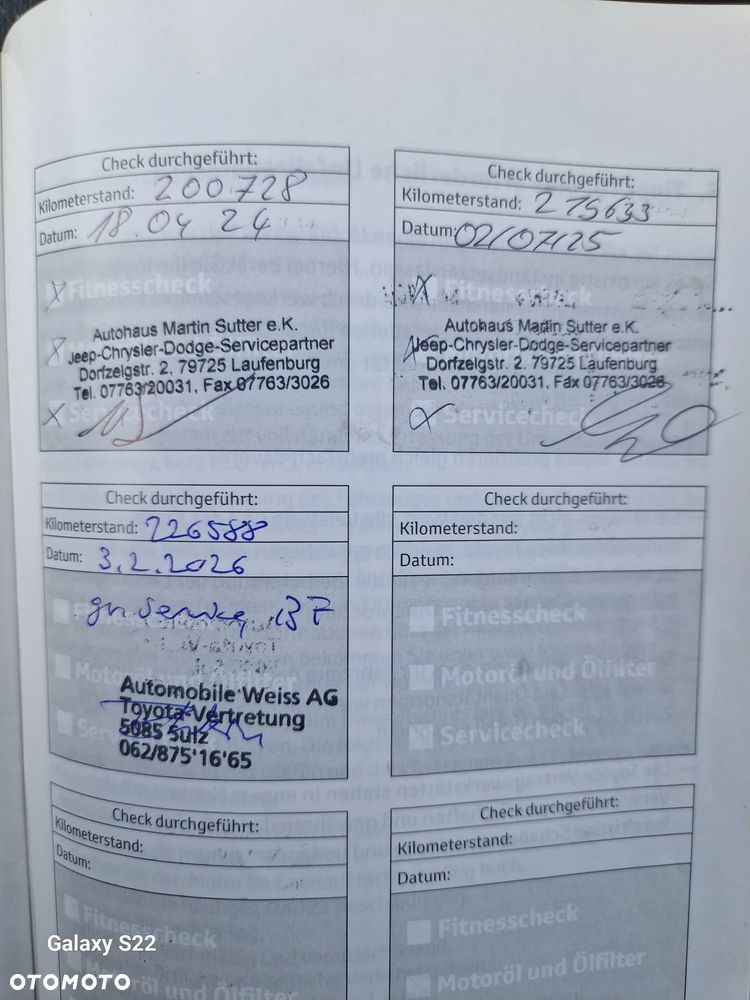 Check durchgeführt:
Kilometerstand: 200.728
Datum: 18.04 24
Fitnesscheck
Autohaus Martin Sutter e.K.
Jeep-Chrysler-Dodge-Servicepartner
Dorfzelgstr. 2, 79725 Laufenburg
Tel. 07763/20031, Fax 07763/3026
Servicecheck
Check durchgeführt:
Kilometerstand: 215633
Datum: 02/07/25
Fitnesscheck
Autohaus Martin Sutter e.K.
Jeep-Chrysler-Dodge-Servicepartner
Dorfzelgstr. 2, 79725 Laufenburg
Tel. 07763/20031, Fax 07763/3026
Servicecheck
Check durchgeführt:
Kilometerstand: 226588
Datum: 3.2.2026
gr. Service, BF
Motoröl und Ölfilter
Automobile Weiss AG
Toyota-Vertretung
5085 Sulz
062/875'16'65
Check durchgeführt:
Kilometerstand:
Datum:
Fitnesscheck
Motoröl und Ölfilter
Servicecheck
Check durchgeführt:
Kilometerstand:
Datum:
Fitnesscheck
Motoröl und Ölfilter
Check durchgeführt:
Kilometerstand:
Datum:
Fitnesscheck
Motoröl und Ölfilter
Galaxy S22
OTOMOTO